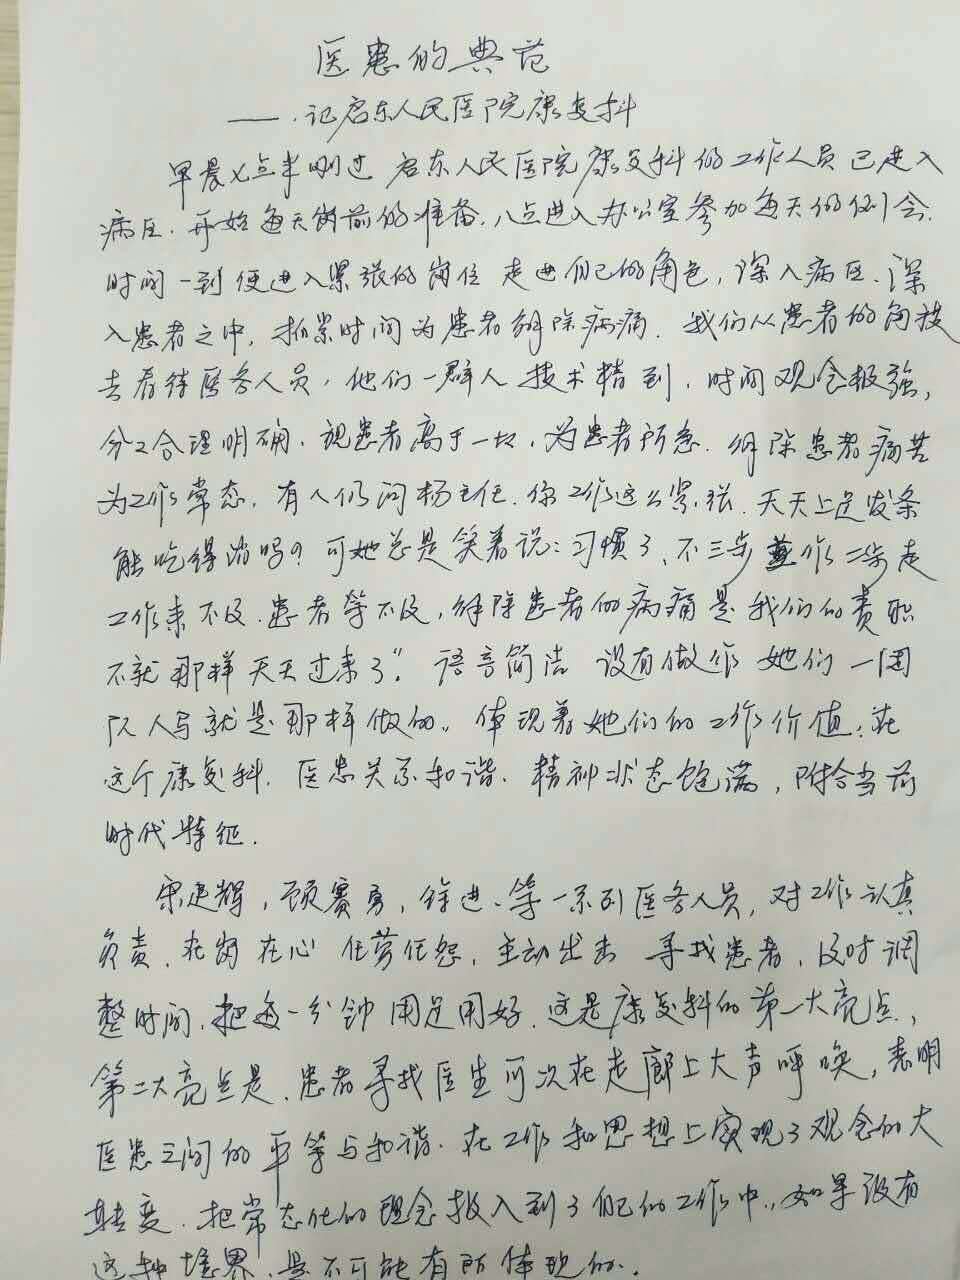 医患的典范
——记启东人民医院康复科
早晨七点半刚过 启东人民医院康复科的工作人员已走入
病区.开始每天岗前的准备.八点进入办公室参加每天的例会.
时间一到便进入紧张的岗位 走进自己的角色,深入病区.深
入患者之中,抓紧时间为患者解除病痛.我们从患者的角度
去看待医务人员,他们一群人技术精到,时间观念极强,
分工合理明确.视患者高于一切,为患者所急.解除患者病苦
为工作常态.有人们问杨主任.你工作这么紧张.天天上足发条
能吃得消吗?可她总是笑着说:习惯了、不三步并作二步走
工作来不及.患者等不及,解除患者的病痛是我们的责职
不就那样天天过来了”.语言简洁 没有做作 她们一团
队人马就是那样做的。体现着她们的工作价值;在
这个康复科.医患关系和谐.精神状态饱满,附合当前
时代特征.
宋建辉,顾赛勇,徐进、等一系列医务人员,对工作认真
负责.在岗在心 任劳任怨,主动出击 寻找患者,及时调
整时间.把每一分钟用足用好.这是康复科的第一大亮点,
第二大亮点是.患者寻找医生可次在走廊上大声呼唤,表明
医患之间的平等与和谐.在工作和思想上实现了观念的大
转变.把常态化的理念投入到了自己的工作中.,如果没有
这种境界.是不可能有所体现的..